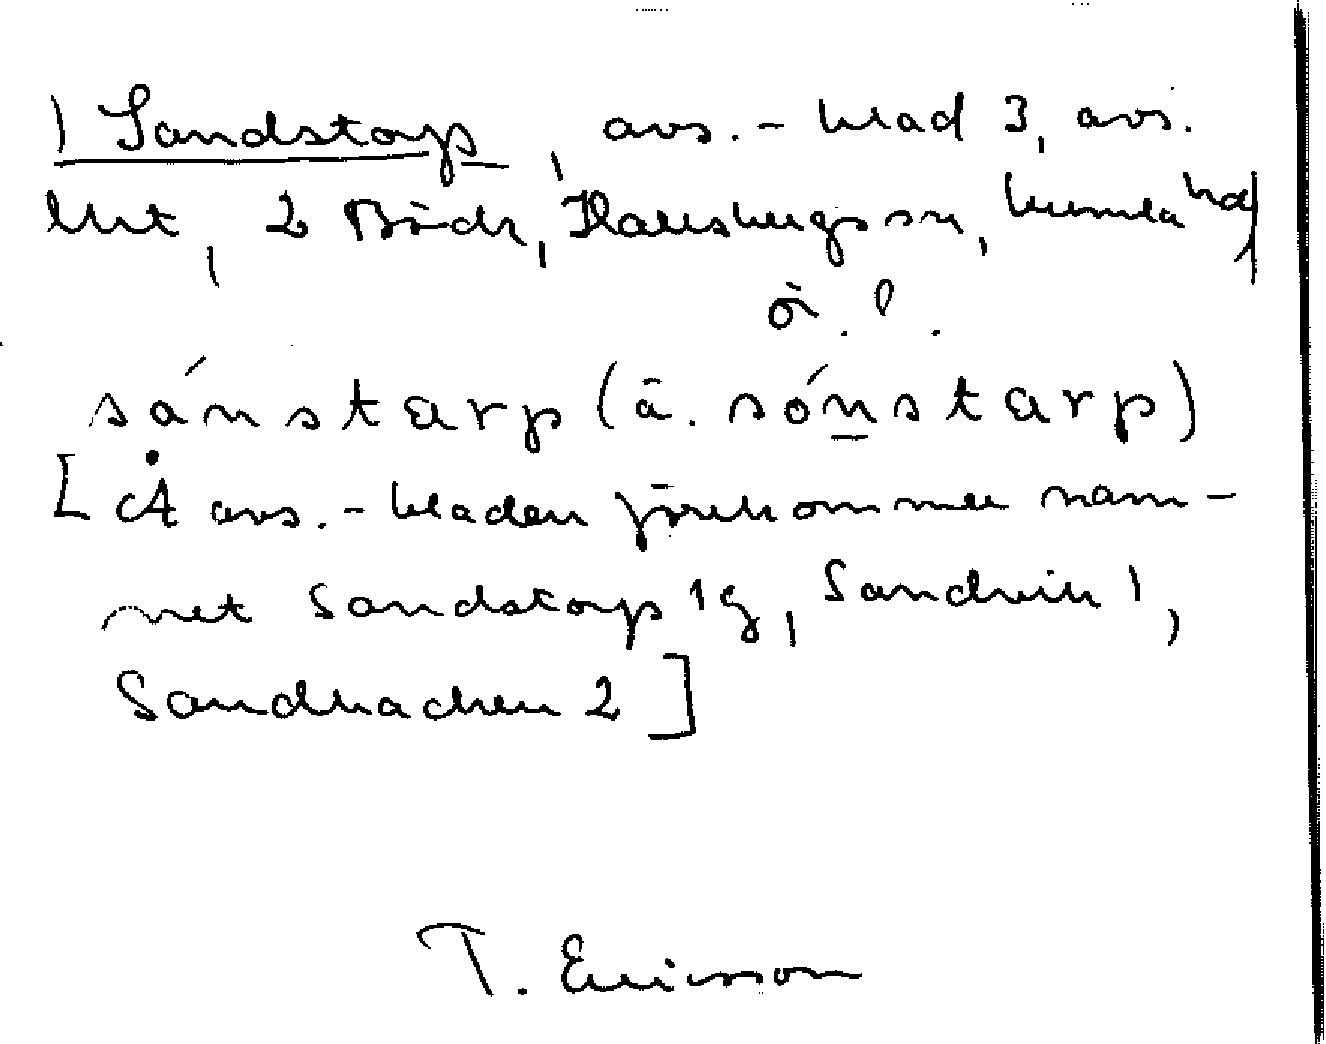 ) Sandstorp, avs.-blad 3, avs.
lht, 2 Brädr, Hallsbergs sn, Kumla hd
ö. l.
sánstarp (ä. sónstarp)
[Å avs.-bladen förekommer nam-
net Sandstorp 1g, Sandvik 1,
Sandbacken 2]
T. Ericsson